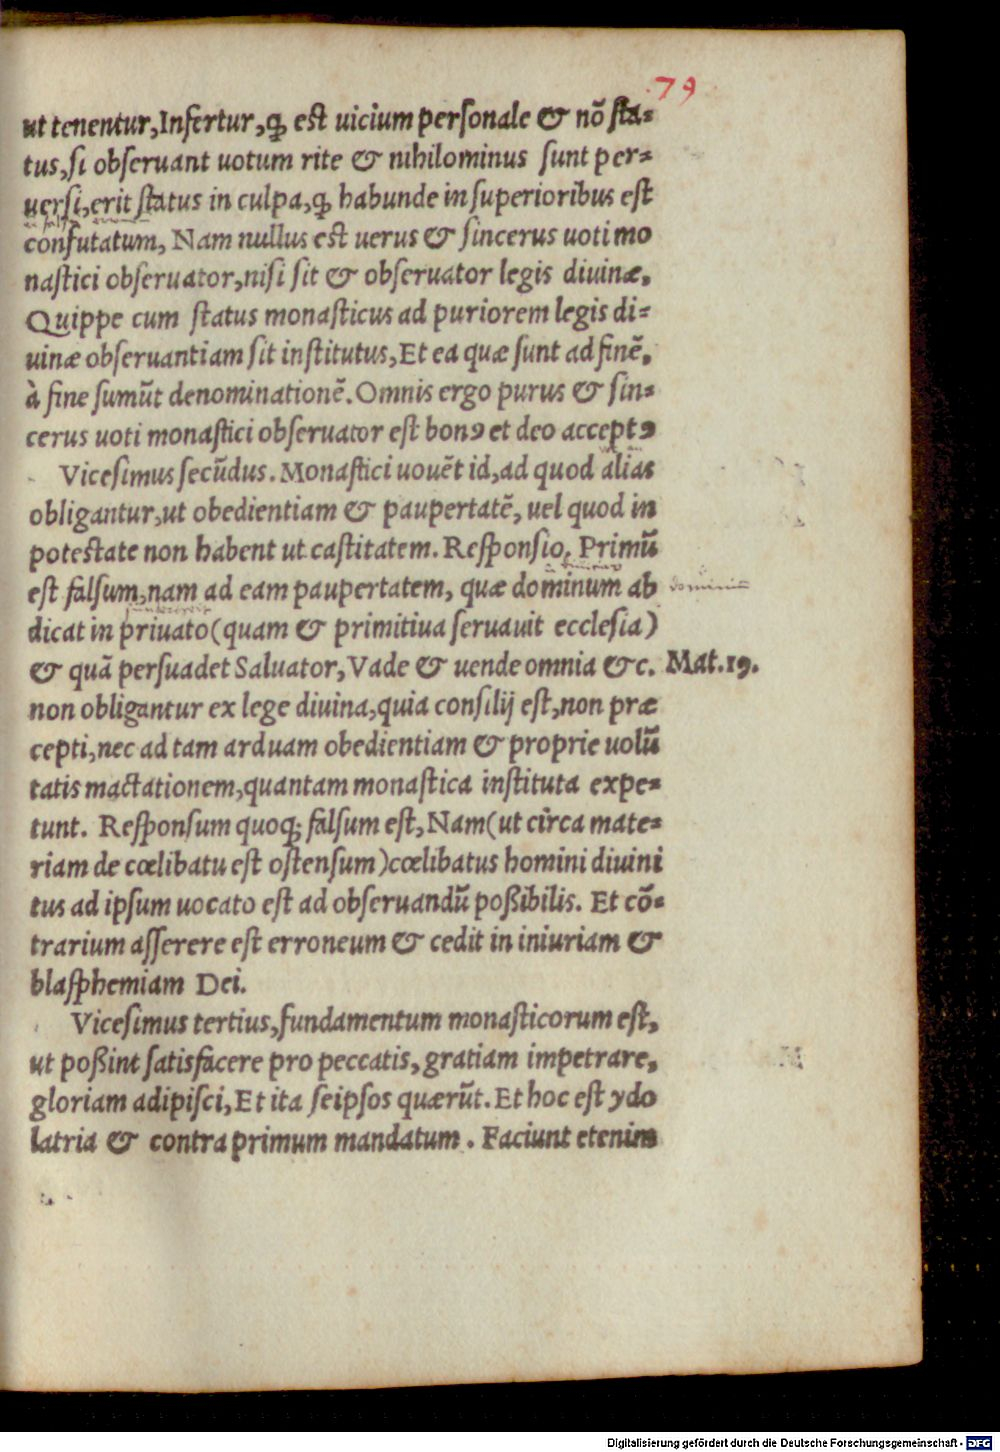 79
ut tenentur,Infertur,ꝙ est uicium personale & nõ sta-
tus,si obseruant uotum rite & nihilominus sunt per-
uersi,erit status in culpa,ꝙ habunde in superioribus est
confutatum, Nam nullus est uerus & sincerus uoti mo
nastici obseruator,nisi sit & obseruator legis diuinæ.
Quippe cum status monasticus ad puriorem legis di-
uinæ obseruantiam sit institutus,Et ea quæ sunt ad finẽ,
à fine sumũt denominationẽ.Omnis ergo purus & sin-
cerus uoti monastici obseruator est bonꝰ et deo acceptꝰ
Vicesimus secũdus. Monastici uouẽt id,ad quod alias
obligantur,ut obedientiam & paupertatẽ, uel quod in
potestate non habent ut castitatem. Responsio. Primũ
est falsum,nam ad eam paupertatem, quæ dominum ab dominium
dicat in priuato(quam & primitiua seruauit ecclesia)
& quã persuadet Saluator,Vade & uende omnia &c. Mat.19.
non obligantur ex lege diuina,quia consilij est,non præ
cepti,nec ad tam arduam obedientiam & proprie uolũ
tatis mactationem,quantam monastica instituta expe-
tunt. Responsum quoqꝫ falsum est,Nam(ut circa mate-
riam de cœlibatu est ostensum)cœlibatus homini diuini
tus ad ipsum uocato est ad obseruandũ poßibilis. Et cõ-
trarium asserere est erroneum & cedit in iniuriam &
blasphemiam Dei.
Vicesimus tertius,fundamentum monasticorum est,
ut poßint satisfacere pro peccatis,gratiam impetrare,
gloriam adipisci,Et ita seipsos quærũt.Et hoc est ydo
latria & contra primum mandatum. Faciunt etenim
Digitalisierung gefördert durch die Deutsche Forschungsgemeinschaft - DFG